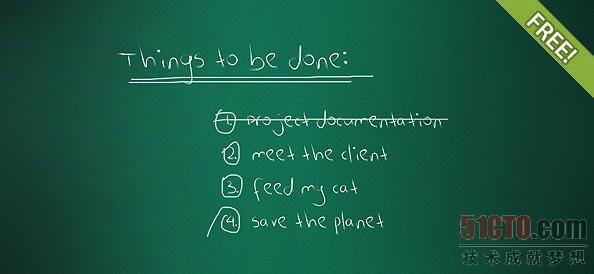 FREE!
Things to be done:
1. project documentation
2. meet the client
3. feed my cat
4. save the planet
51CTO.com
技术成就梦想